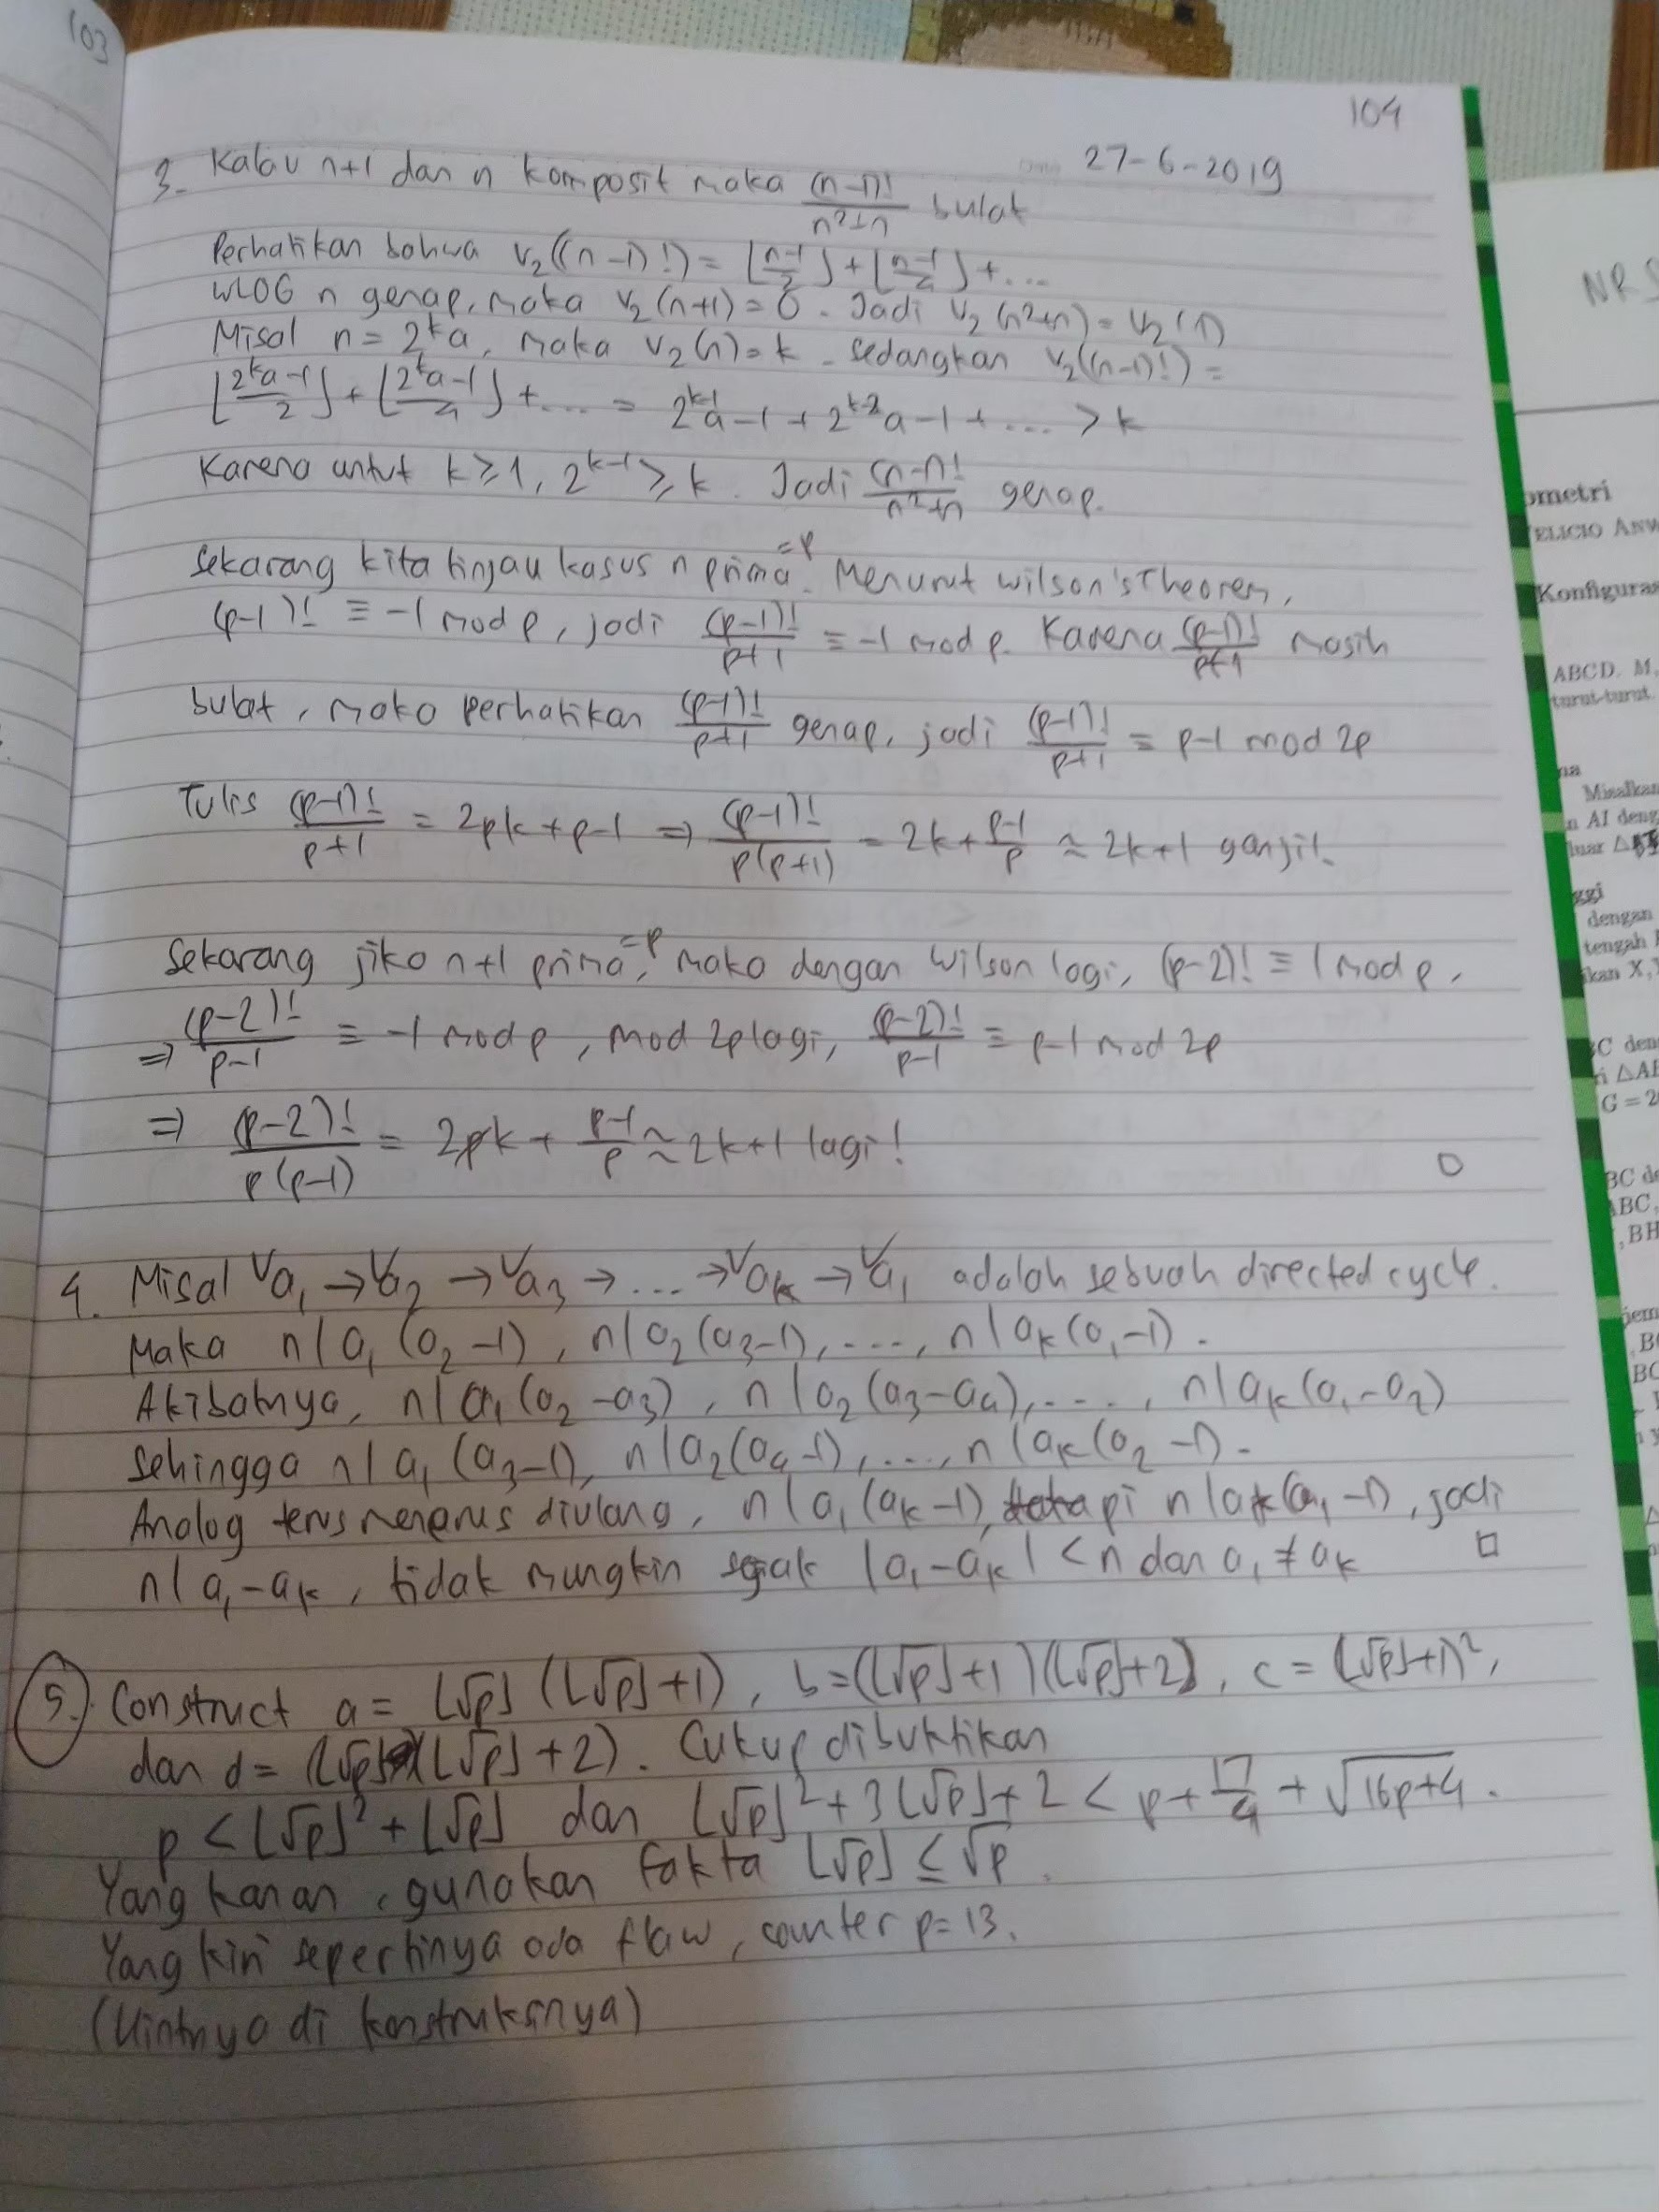 103
104
27-6-2019
3. Kalau n+1 dan n komposit maka (n-1)!/(n²+n) bulat
Perhatikan bahwa v₂((n-1)!) = ⌊(n-1)/2⌋ + ⌊(n-1)/4⌋ + ...
WLOG n genap, maka v₂(n+1) = 0. Jadi v₂(n²+n) = v₂(n)
Misal n = 2ᵏa, maka v₂(n) = k. sedangkan v₂((n-1)!) =
⌊(2ᵏa-1)/2⌋ + ⌊(2ᵏa-1)/4⌋ + ... = 2ᵏ⁻¹a-1 + 2ᵏ⁻²a-1 + ... > k
Karena untuk k ≥ 1, 2ᵏ⁻¹ ≥ k. Jadi (n-1)!/(n²+n) genap.
Sekarang kita tinjau kasus n prima =p. Menurut Wilson's Theorem,
(p-1)! ≡ -1 mod p, jadi (p-1)!/(p+1) ≡ -1 mod p. Karena (p-1)!/(p+1) masih
bulat, maka perhatikan (p-1)!/(p+1) genap, jadi (p-1)!/(p+1) ≡ p-1 mod 2p
Tulis (p-1)!/(p+1) = 2pk+p-1 ⇒ (p-1)!/(p(p+1)) = 2k + (p-1)/p ≈ 2k+1 ganjil.
Sekarang jika n+1 prima =p, maka dengan Wilson lagi, (p-2)! ≡ 1 mod p,
⇒ (p-2)!/(p-1) ≡ -1 mod p, mod 2p lagi, (p-2)!/(p-1) ≡ p-1 mod 2p
⇒ (p-2)!/(p(p-1)) = 2pk + (p-1)/p ≈ 2k+1 lagi! □
4. Misal Va₁ → Va₂ → Va₃ → ... → Vaₖ → Va₁ adalah sebuah directed cycle.
Maka n|a₁(a₂-1), n|a₂(a₃-1), ..., n|aₖ(a₁-1).
Akibatnya, n|a₁(a₂-a₃), n|a₂(a₃-a₄), ..., n|aₖ(a₁-a₂)
Sehingga n|a₁(a₃-1), n|a₂(a₄-1), ..., n|aₖ(a₂-1).
Analog terus menerus diulang, n|a₁(aₖ-1), tetapi n|aₖ(a₁-1), jadi
n|a₁-aₖ, tidak mungkin sejak |a₁-aₖ| < n dan a₁ ≠ aₖ □
5. Construct a = ⌊√p⌋(⌊√p⌋+1), b = (⌊√p⌋+1)(⌊√p⌋+2), c = (⌊√p⌋+1)²,
dan d = ⌊√p⌋(⌊√p⌋+2). Cukup dibuktikan
p < ⌊√p⌋² + ⌊√p⌋ dan ⌊√p⌋² + 3⌊√p⌋ + 2 < p + 17/4 + √(16p+4).
Yang kanan, gunakan fakta ⌊√p⌋ ≤ √p.
Yang kiri sepertinya ada flaw, counter p=13.
(Hintnya di konstruksinya)
ometri
Konfiguras
ABCD. M,
turut-turut
na
Misalkan
n AI deng
luar △
ggi
dengan
tengah
ikan X,
C den
△AB
G = 2
BC de
ABC,
, BH